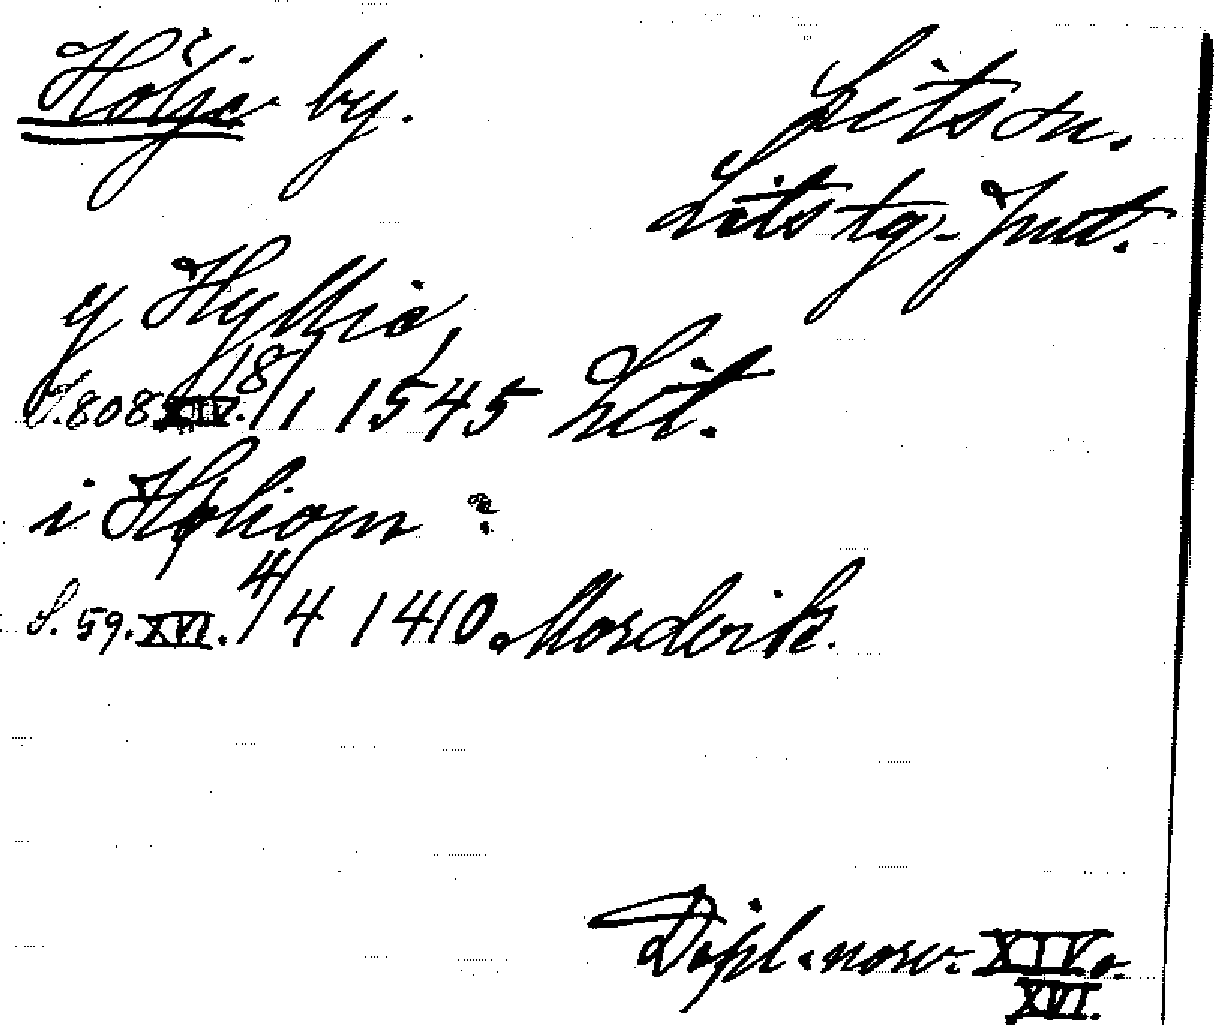 Hölje by.
Lits sn.
Lits tg. Jmt.
y Hyllie,
S. 808 XIV. 18/1 1545 Lit.
i Høliom ?
S. 59. XVI. 4/4 1410. Mordvik.
Dipl. norv. XIV o.
XVI.